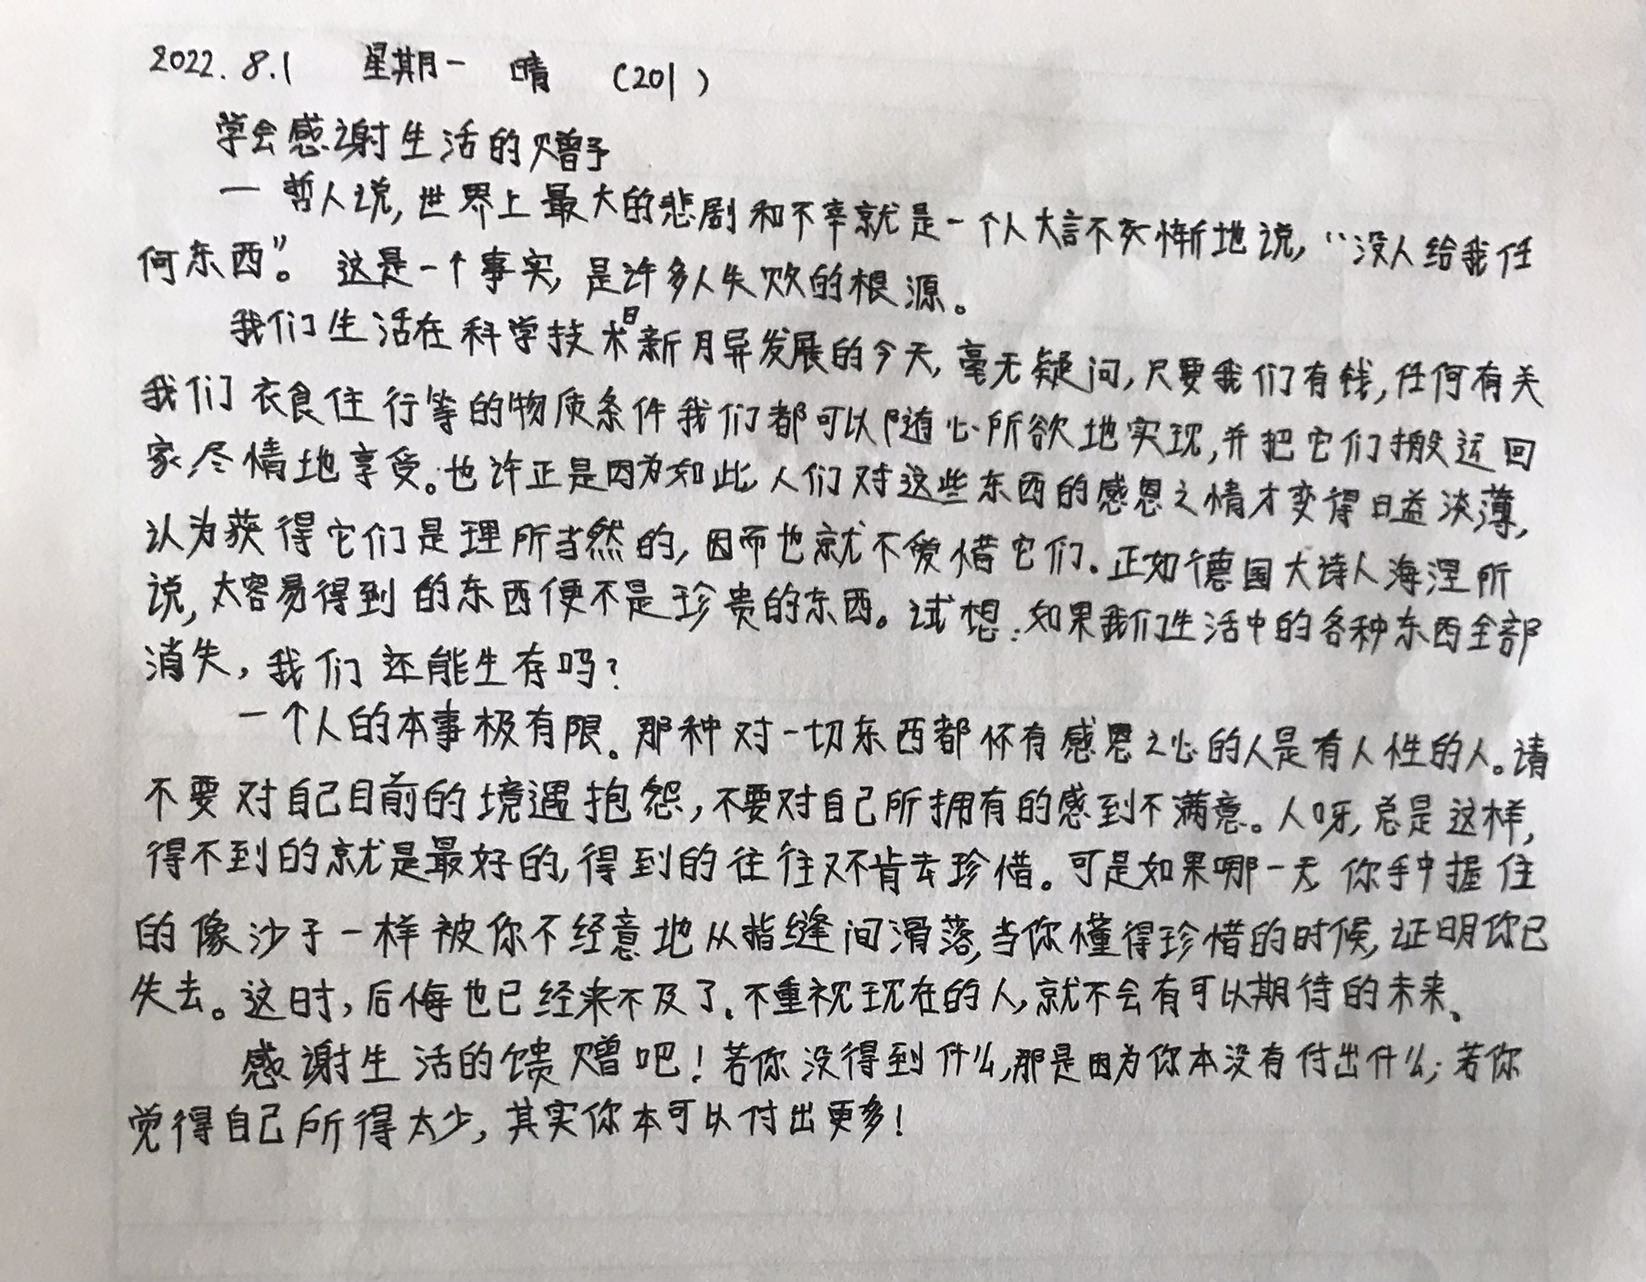 2022.8.1 星期一 晴 (201)
学会感谢生活的赠予
一哲人说,世界上最大的悲剧和不幸就是一个人大言不惭地说,“没人给我任
何东西”。这是一个事实,是许多人失败的根源。
我们生活在科学技术日新月异发展的今天,毫无疑问,只要我们有钱,任何有关
我们衣食住行等的物质条件我们都可以随心所欲地实现,并把它们搬运回
家,尽情地享受。也许正是因为如此人们对这些东西的感恩之情才变得日益淡薄,
认为获得它们是理所当然的,因而也就不爱惜它们.正如德国大诗人海涅所
说,太容易得到的东西便不是珍贵的东西。试想:如果我们生活中的各种东西全部
消失,我们还能生存吗?
一个人的本事极有限。那种对一切东西都怀有感恩之心的人是有人性的人。请
不要对自己目前的境遇抱怨,不要对自己所拥有的感到不满意。人呀,总是这样,
得不到的就是最好的,得到的往往又不肯去珍惜。可是如果哪一天你手中握住
的像沙子一样被你不经意地从指缝间滑落,当你懂得珍惜的时候,证明你已
失去。这时,后悔也已经来不及了.不重视现在的人,就不会有可以期待的未来、
感谢生活的馈赠吧!若你没得到什么,那是因为你本没有付出什么;若你
觉得自己所得太少,其实你本可以付出更多!